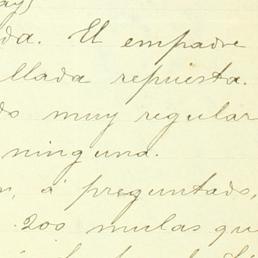 da. El empadre
llada repuesta.
do muy regular
ninguna.
á preguntado,
200 mulas qu